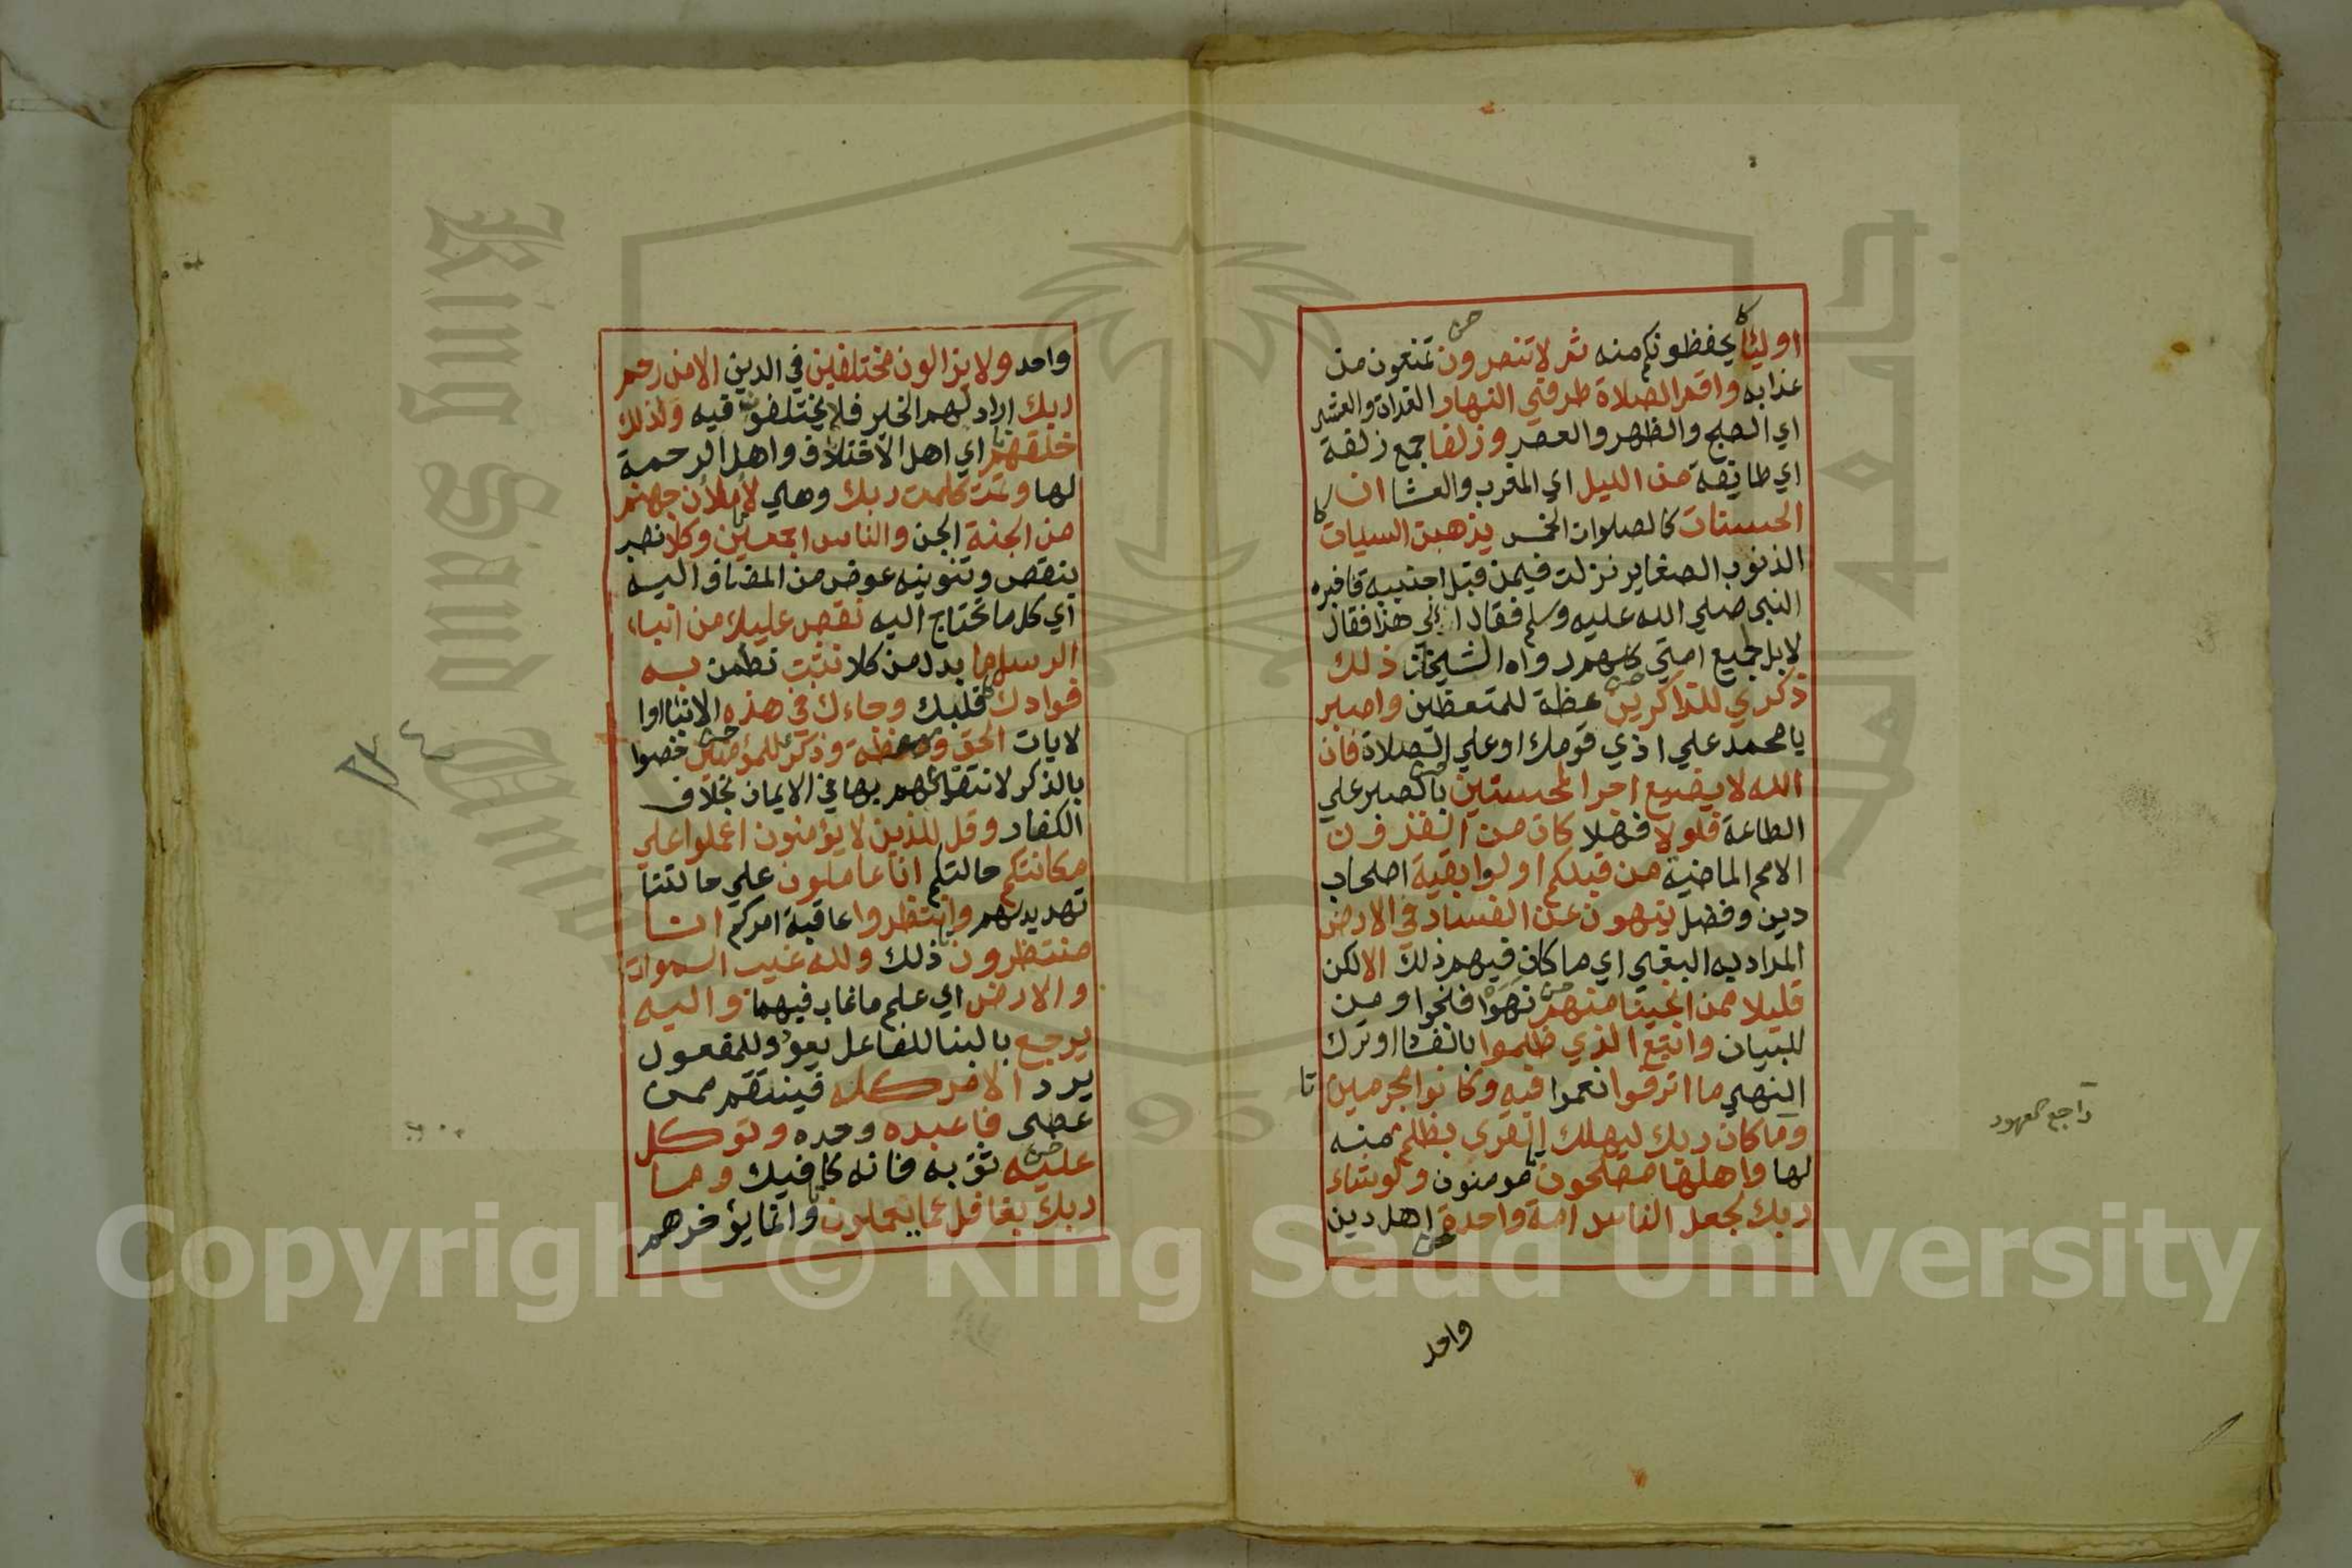 اوليا يحفظونكم منه ثم لا تنصرون تمنعون من
عذابه واقم الصلاة طرفي النهار الغداة والعشي
اي الصبح والظهر والعصر وزلفا جمع زلفة
اي طايفة من الليل اي المغرب والعشا ان
الحسنات كالصلوات الخمس يذهبن السيات
الذنوب الصغاير نزلت فيمن قبل اجنبية فاخبره
النبي صلي الله عليه وسلم فقال الي هذا فقال
لا بل لجميع امتي كلهم رواه الشيخان ذلك
ذكري للذاكرين عظة للمتعظين واصبر
يا محمد علي اذي قومك او علي الصلاة فان
الله لا يضيع اجر المحسنين بالصبر علي
الطاعة فلولا فهلا كان من القرون
الامم الماضية من قبلكم اولوا بقية اصحاب
دين وفضل ينهون عن الفساد في الارض
المراد به النفي اي ما كان فيهم ذلك الا لكن
قليلا ممن انجينا منهم نهوا فنجوا ومن
للبيان واتبع الذي ظلموا بالفساد او ترك
النهي ما اترفوا نعموا فيه وكانوا مجرمين
وما كان ربك ليهلك القري بظلم منه
لها واهلها مصلحون مومنون ولو شاء
ربك لجعل الناس امة واحدة اهل دين
واحد
راجع العهود
واحد ولا يزالون مختلفين في الدين الا من رحم
ربك اراد لهم الخير فلا يختلفون فيه ولذلك
خلقهم اي اهل الاختلاف واهل الرحمة
لها وتمت كلمت ربك وهي لأملأن جهنم
من الجنة الجن والناس اجمعين وكلا نصب
بنقص وتنوينه عوض من المضاف اليه
اي كل ما تحتاج اليه نقص عليك من انباء
الرسل ما بدل من كلا نثبت نطمن به
فوادك قلبك وجاءك في هذه الانباء او
لايات الحق وموعظة وذكر للمؤمنين خصوا
بالذكر لانتفاعهم بها في الايمان بخلاف
الكفار وقل للذين لا يؤمنون اعملوا علي
مكانتكم حالتكم انا عاملون علي حالتنا
تهديد لهم وانتظروا عاقبة امركم انا
منتظرون ذلك ولله غيب السموات
والارض اي علم ما غاب فيهما واليه
يرجع بالبنا للفاعل يعود وللمفعول
يرد الامر كله فينتقم ممن
عصي فاعبده وحده وتوكل
عليه ثق به فانه كافيك وما
ربك بغافل عما يعملون وانما يؤخرهم
Copyright © King Saud University
King Saud University
1957